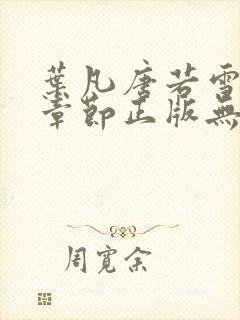 葉凡唐若雪
章節正版無
周寬余